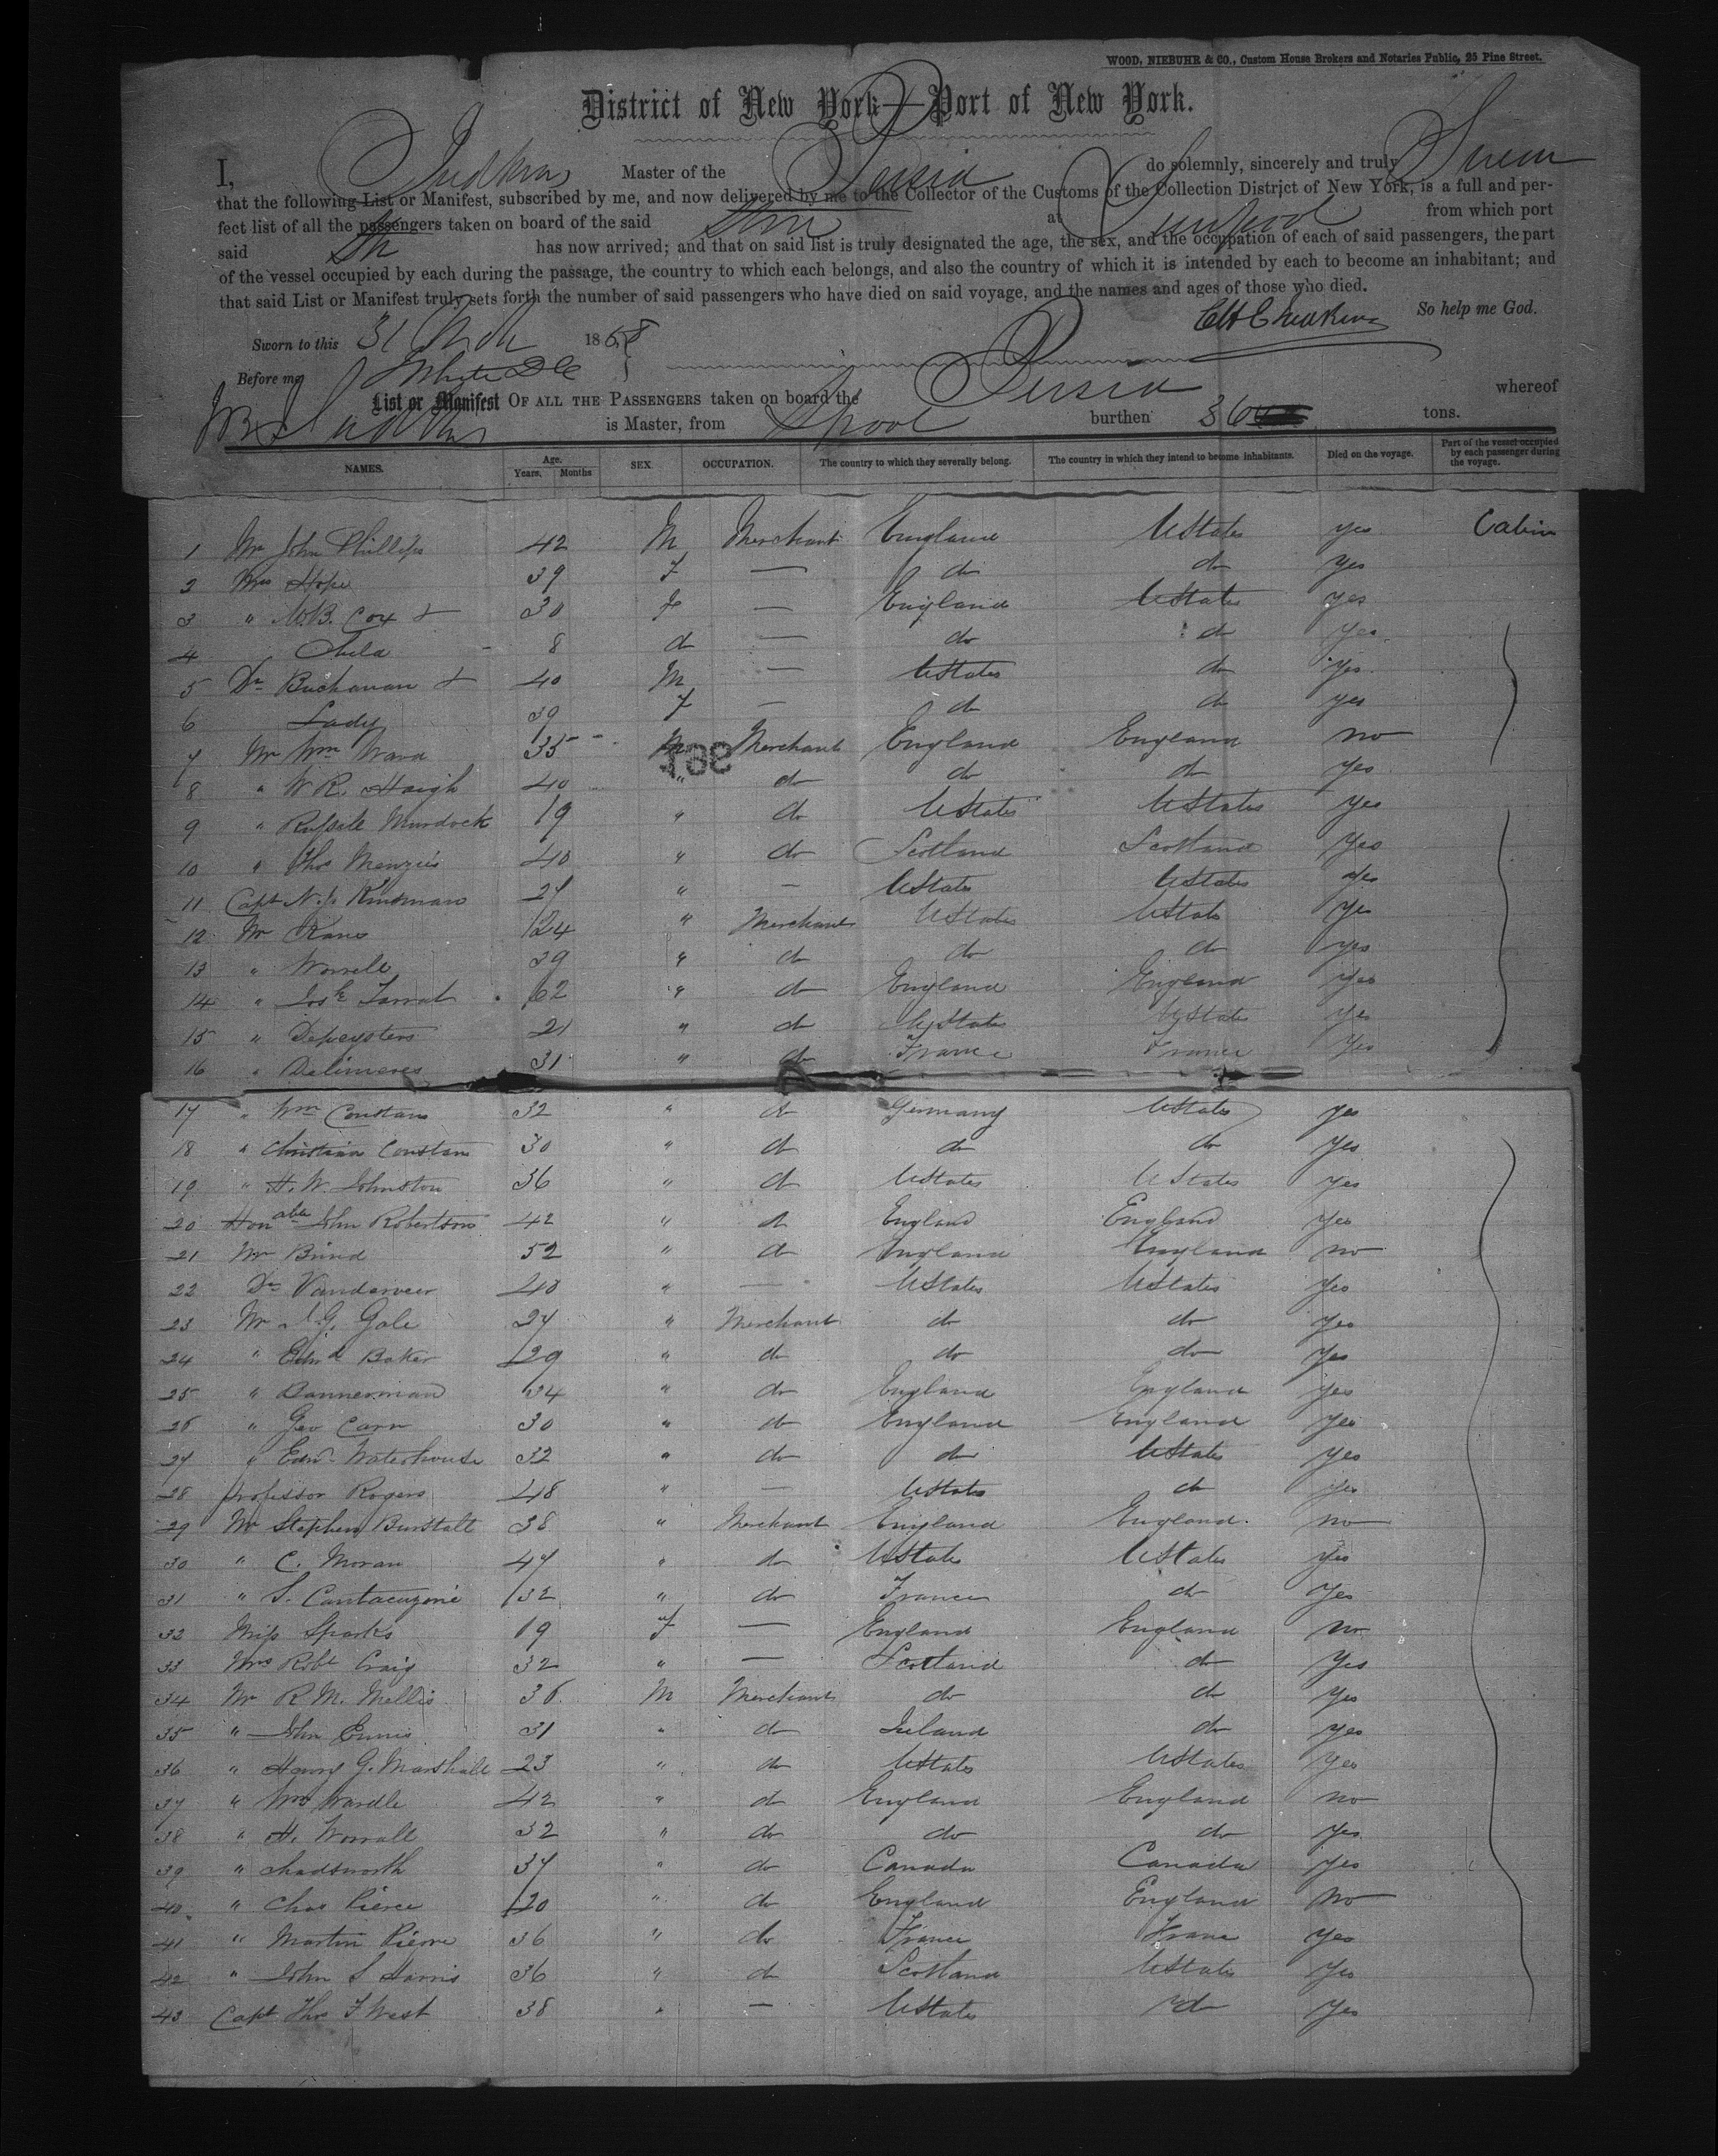 WOOD, NIEBUHR & CO., Custom House Brokers and Notaries Public, 25 Pine Street.
District of New York—Port of New York.
I, Judkins Master of the Persia do solemnly, sincerely and truly Swear
that the following List or Manifest, subscribed by me, and now delivered by me to the Collector of the Customs of the Collection District of New York, is a full and per-
fect list of all the passengers taken on board of the said Stm at Liverpool from which port
said Sh has now arrived; and that on said list is truly designated the age, the sex, and the occupation of each of said passengers, the part
of the vessel occupied by each during the passage, the country to which each belongs, and also the country of which it is intended by each to become an inhabitant; and
that said List or Manifest truly sets forth the number of said passengers who have died on said voyage, and the names and ages of those who died.
So help me God.
Sworn to this 31 Mch 1858
Before me
List or Manifest OF ALL THE PASSENGERS taken on board the Persia whereof
Judkins is Master, from Lpool burthen 36 tons.
NAMES. Age. Years. Months SEX. OCCUPATION. The country to which they severally belong. The country in which they intend to become inhabitants. Died on the voyage. Part of the vessel occupied by each passenger during the voyage.
1 Mr John Phillips 42 M Merchant England UStates yes Cabin
2 Mrs Hope 39 F — do do yes
3 " W.B. Cox & 30 F — England UStates yes
4 Child 8 d — do do yes
5 Dr Buchanan & 40 M — UStates do yes
6 Lady 39 F — do do yes
7 Mr Wm Ward 35 M Merchant England England no
8 " W R. Haigh 40 " do do do yes
9 " Russell Murdock 19 " do UStates UStates yes
10 " Thos Menzies 40 " do Scotland Scotland yes
11 Capt N. Kinsman 27 " — UStates UStates yes
12 Mr Kane 24 " Merchant UStates UStates yes
13 " Worrell 39 " do do do yes
14 " Josh Tarrat 62 " do England England yes
15 " Depeysters 21 " do UStates UStates yes
16 " Delimeres 31 " do France France yes
17 " Wm Constam 32 " do Germany UStates yes
18 " Christian Constam 30 " do do do yes
19 " H. W. Johnston 36 " do UStates UStates yes
20 Honable John Robertson 42 " do England England yes
21 Mr Bird 52 " do England England no
22 Dr Vanderveer 40 " — UStates UStates yes
23 Mr J. G. Gale 27 " Merchant do do yes
24 " Edwd Baker 29 " do do do yes
25 " Bannerman 34 " do England England yes
26 " Geo Carr 30 " do England England yes
27 " Edwd Waterhouse 32 " do do UStates yes
28 Professor Rogers 48 " — UStates do yes
29 Mr Stephen Burstall 38 " Merchant England England no
30 " C. Moran 47 " do UStates UStates yes
31 " S. Cantacuzené 32 " do France do yes
32 Miss Sparks 19 F — England England no
33 Mrs Robt Craig 32 " — Scotland do yes
34 Mr R. M. Mellis 36 M Merchant do do yes
35 " John Ennis 31 " do Ireland do yes
36 " Henry G. Marshall 23 " do UStates UStates yes
37 " Wm Wardle 42 " do England England no
38 " H. Worrall 32 " do do do yes
39 " Chadsworth 37 " do Canada Canada yes
40 " Chas Pierce 20 " do England England no
41 " Martin Pierre 36 " do France France yes
42 " John S Harris 36 " do Scotland UStates yes
43 Capt Thos F West 38 " — UStates do yes